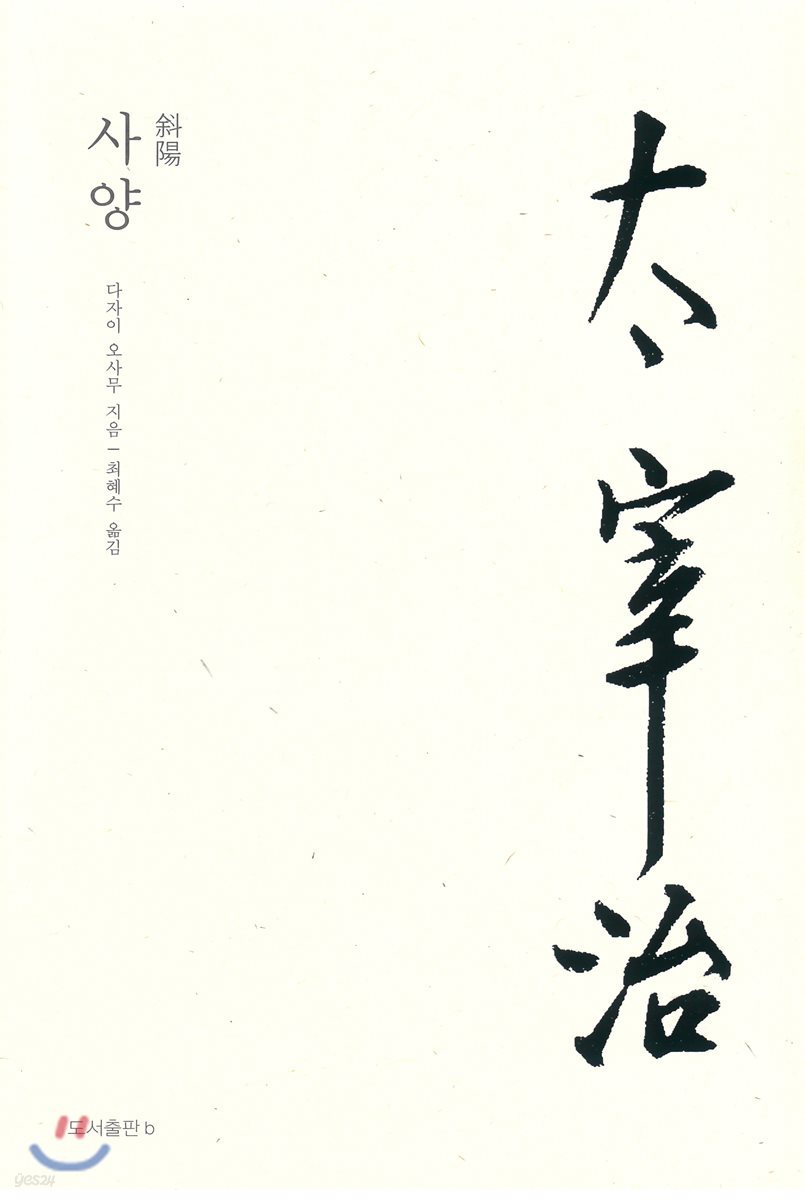 太宰治
斜陽
사양
다자이 오사무 지음 – 최혜수 옮김
도서출판 b
yes24